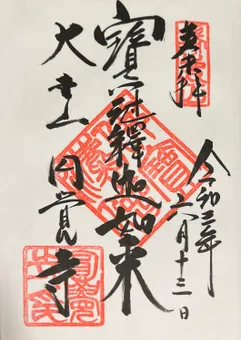 奉拝
令和三年
六月十三日
寶冠釋迦如来
大本山
円覚寺